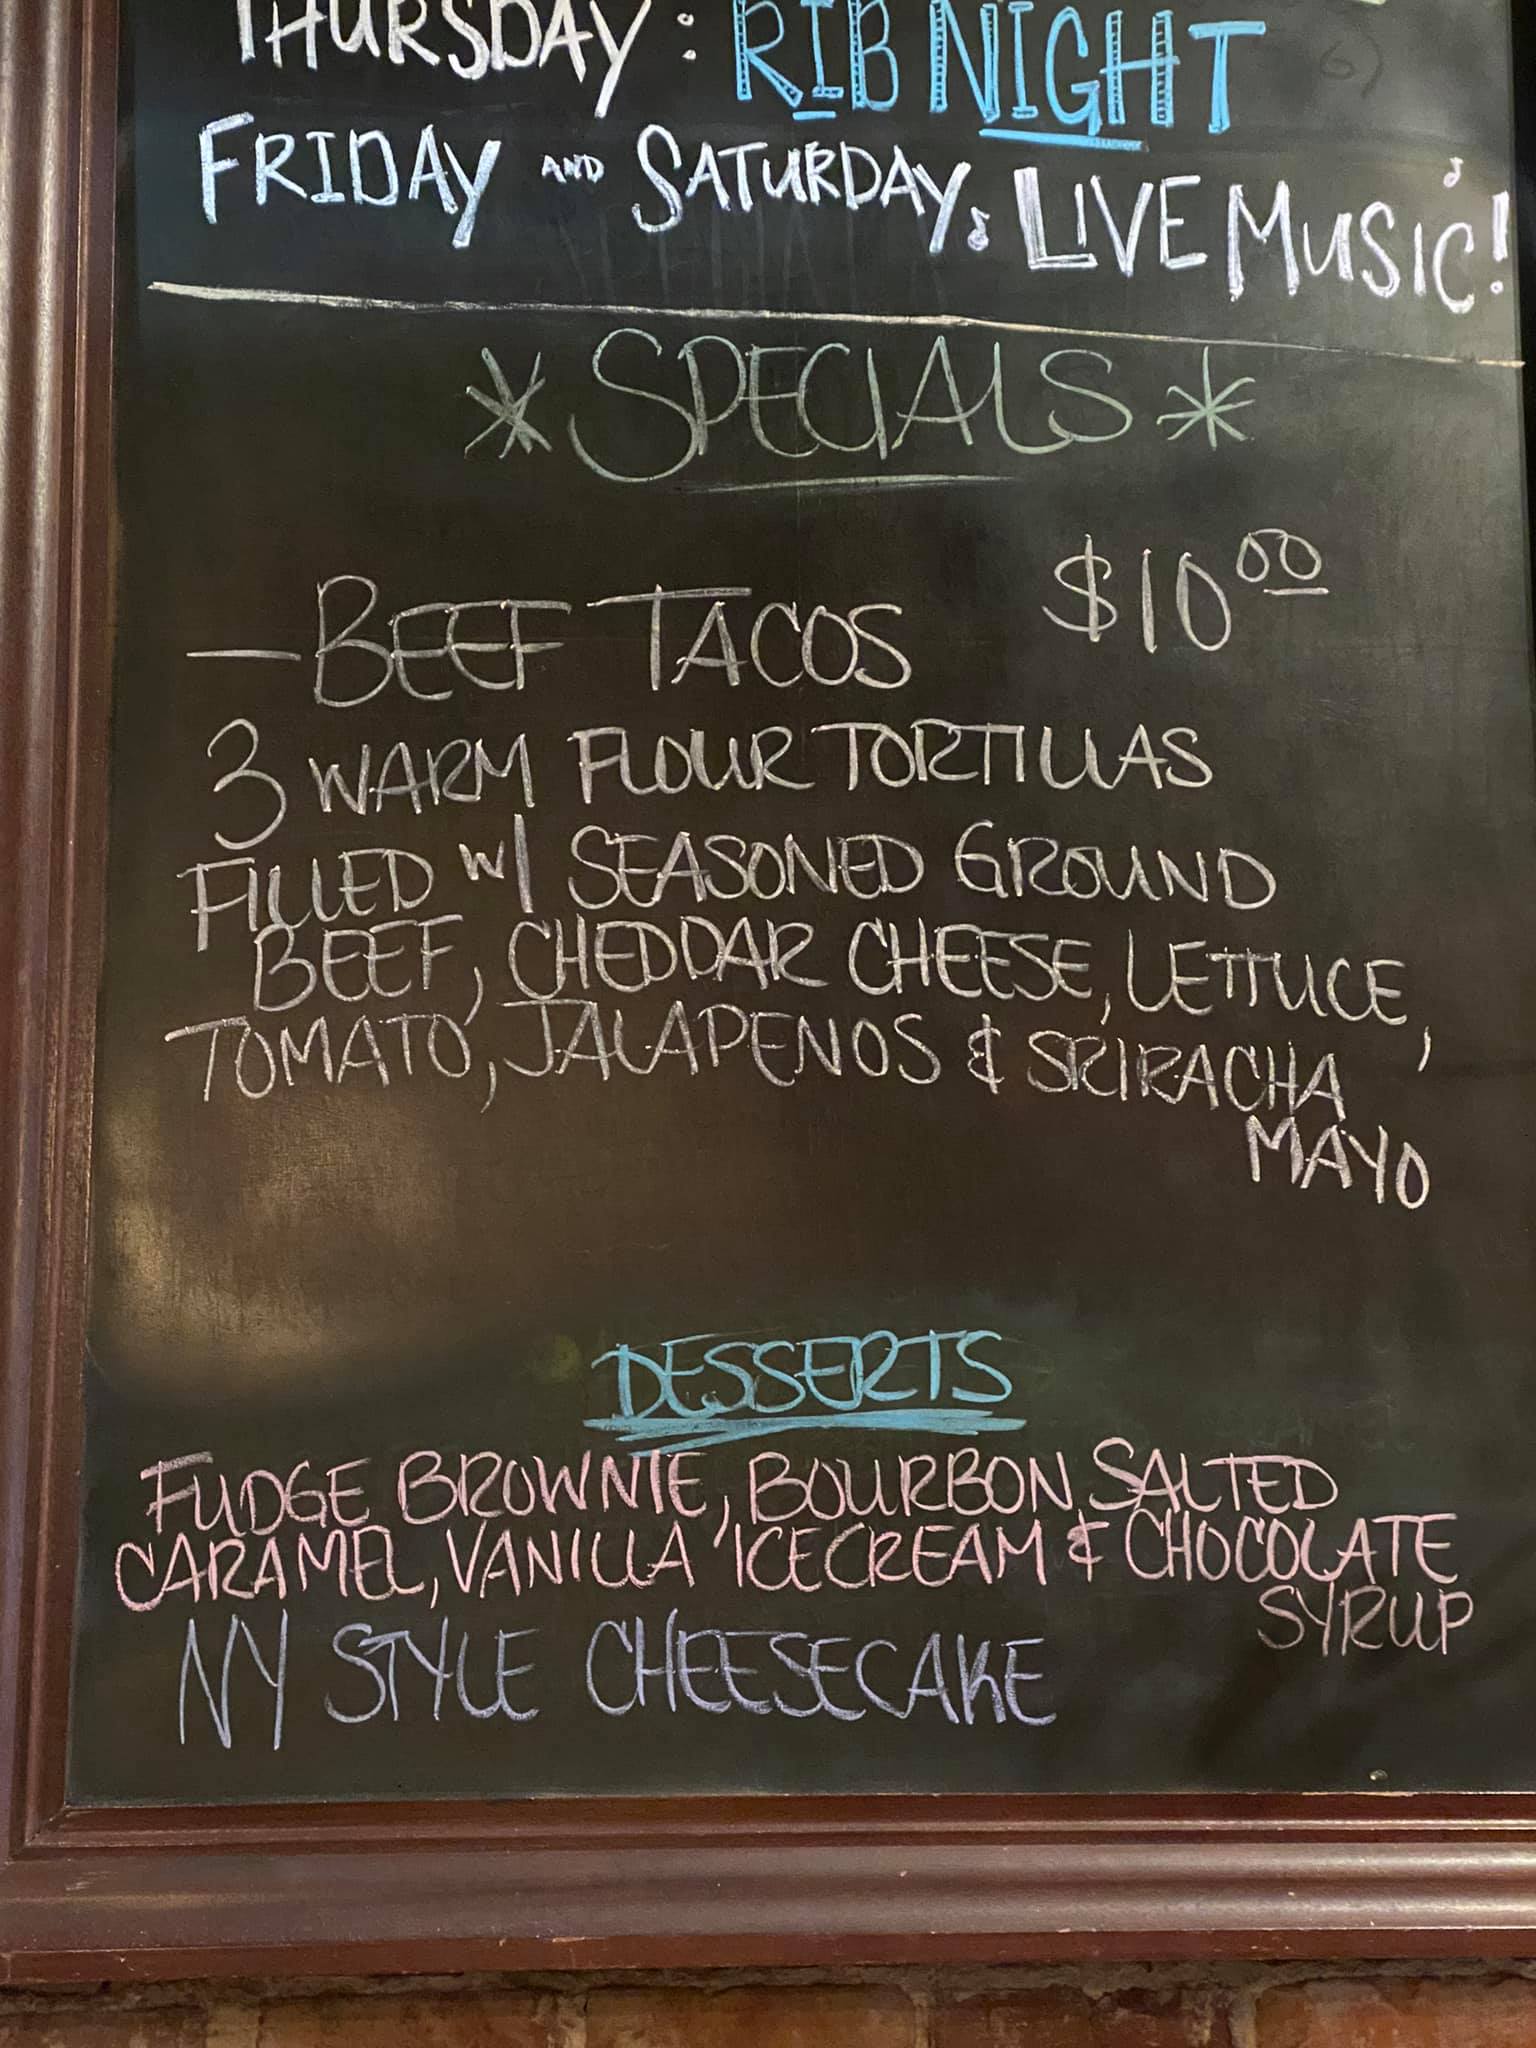 THURSDAY: RIB NIGHT
FRIDAY AND SATURDAY: LIVE MUSIC!
* SPECIALS *
- BEEF TACOS $10.00
3 WARM FLOUR TORTILLAS
FILLED W/ SEASONED GROUND
BEEF, CHEDDAR CHEESE, LETTUCE,
TOMATO, JALAPENOS & SRIRACHA
MAYO
DESSERTS
FUDGE BROWNIE, BOURBON SALTED
CARAMEL, VANILLA ICECREAM & CHOCOLATE
SYRUP
NY STYLE CHEESECAKE